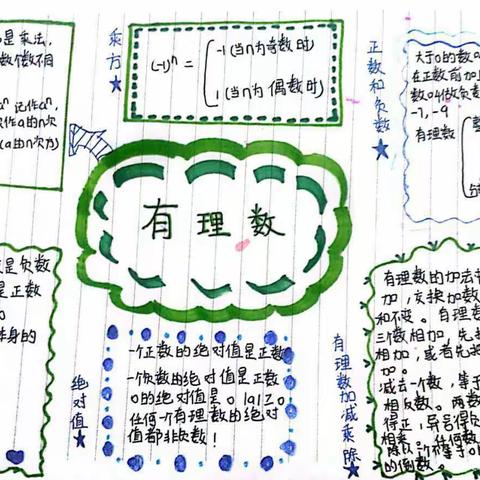 是乘法,
数个数不同
记作aⁿ,
作a的n次
(a的n次方)
乘方
(-1)ⁿ =
-1(当n为奇数时)
1(当n为偶数时)
正数和负数
大于0的数
在正数前加上
数叫做负数
-7, -9
有理数
有理数
是负数
是正数
0
本身的
绝对值
一个正数的绝对值是正数
一个负数的绝对值是正数
0的绝对值是0 |a|≥0
任何一个有理数的绝对
值都非负数!
有理数加减乘除
有理数的加法
加,交换加数
和不变。有理数
三个数相加,先
相加,或者先把
加。
减去一个数,等于
相反数。两数
得正,异号得负
相乘。任何数
除以一个不等于0
的倒数。